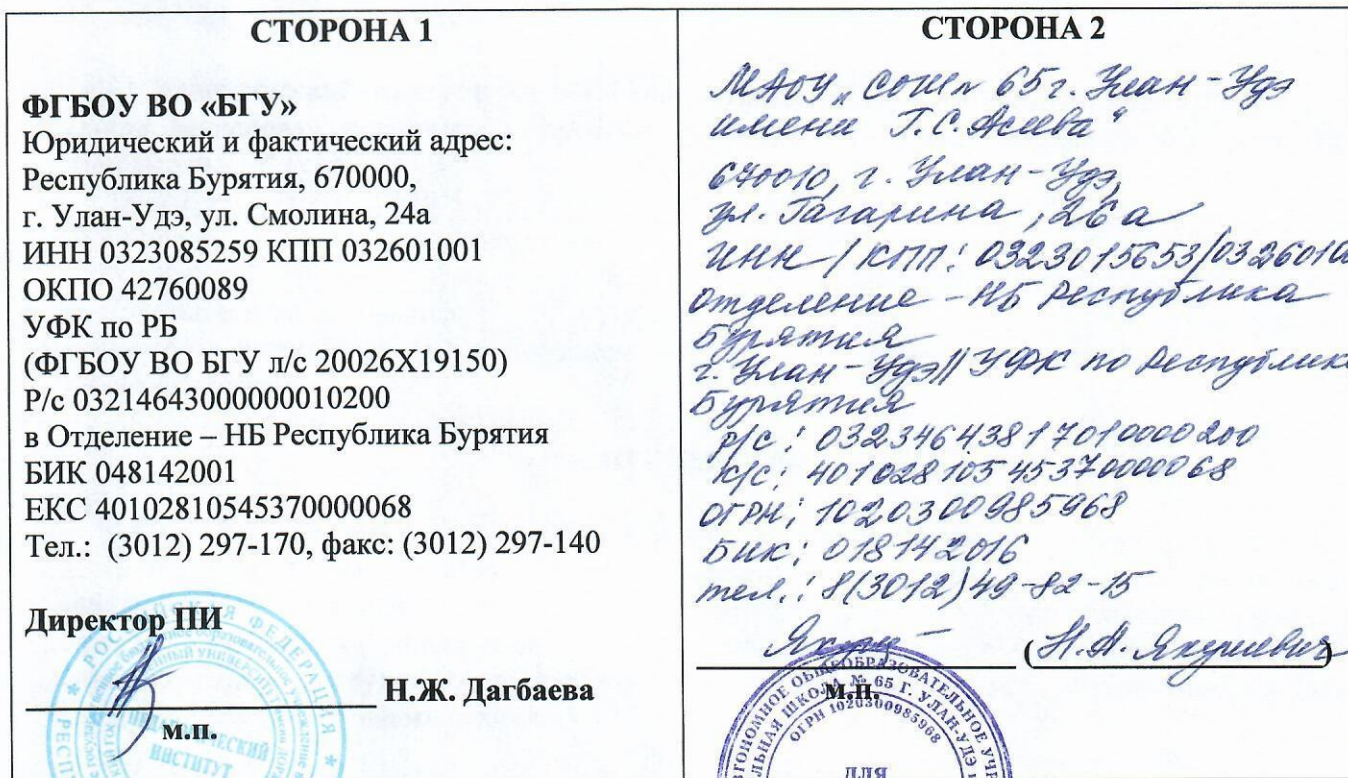 СТОРОНА 1
ФГБОУ ВО «БГУ»
Юридический и фактический адрес:
Республика Бурятия, 670000,
г. Улан-Удэ, ул. Смолина, 24а
ИНН 0323085259 КПП 032601001
ОКПО 42760089
УФК по РБ
(ФГБОУ ВО БГУ л/с 20026X19150)
Р/с 03214643000000010200
в Отделение – НБ Республика Бурятия
БИК 048142001
ЕКС 40102810545370000068
Тел.: (3012) 297-170, факс: (3012) 297-140
Директор ПИ
Н.Ж. Дагбаева
м.п.
РОССИЙСКАЯ ФЕДЕРАЦИЯ
ПЕДАГОГИЧЕСКИЙ
ИНСТИТУТ
СТОРОНА 2
МАОУ „СОШ № 65 г. Улан-Удэ
имени Г.С. Асеева"
670010, г. Улан-Удэ,
ул. Гагарина, 26а
ИНН / КПП: 0323015653/0326010
отделение - НБ Республика
Бурятия
г. Улан-Удэ// УФК по Республике
Бурятия
р/с: 03234643817010000200
к/с: 40102810545370000068
ОГРН: 1020300985968
БИК: 018142016
тел.: 8(3012)49-82-15
(Н.А. Якушевич)
м.п.
ШКОЛА № 65 Г. УЛАН-УДЭ
ОГРН 1020300985968
ДЛЯ